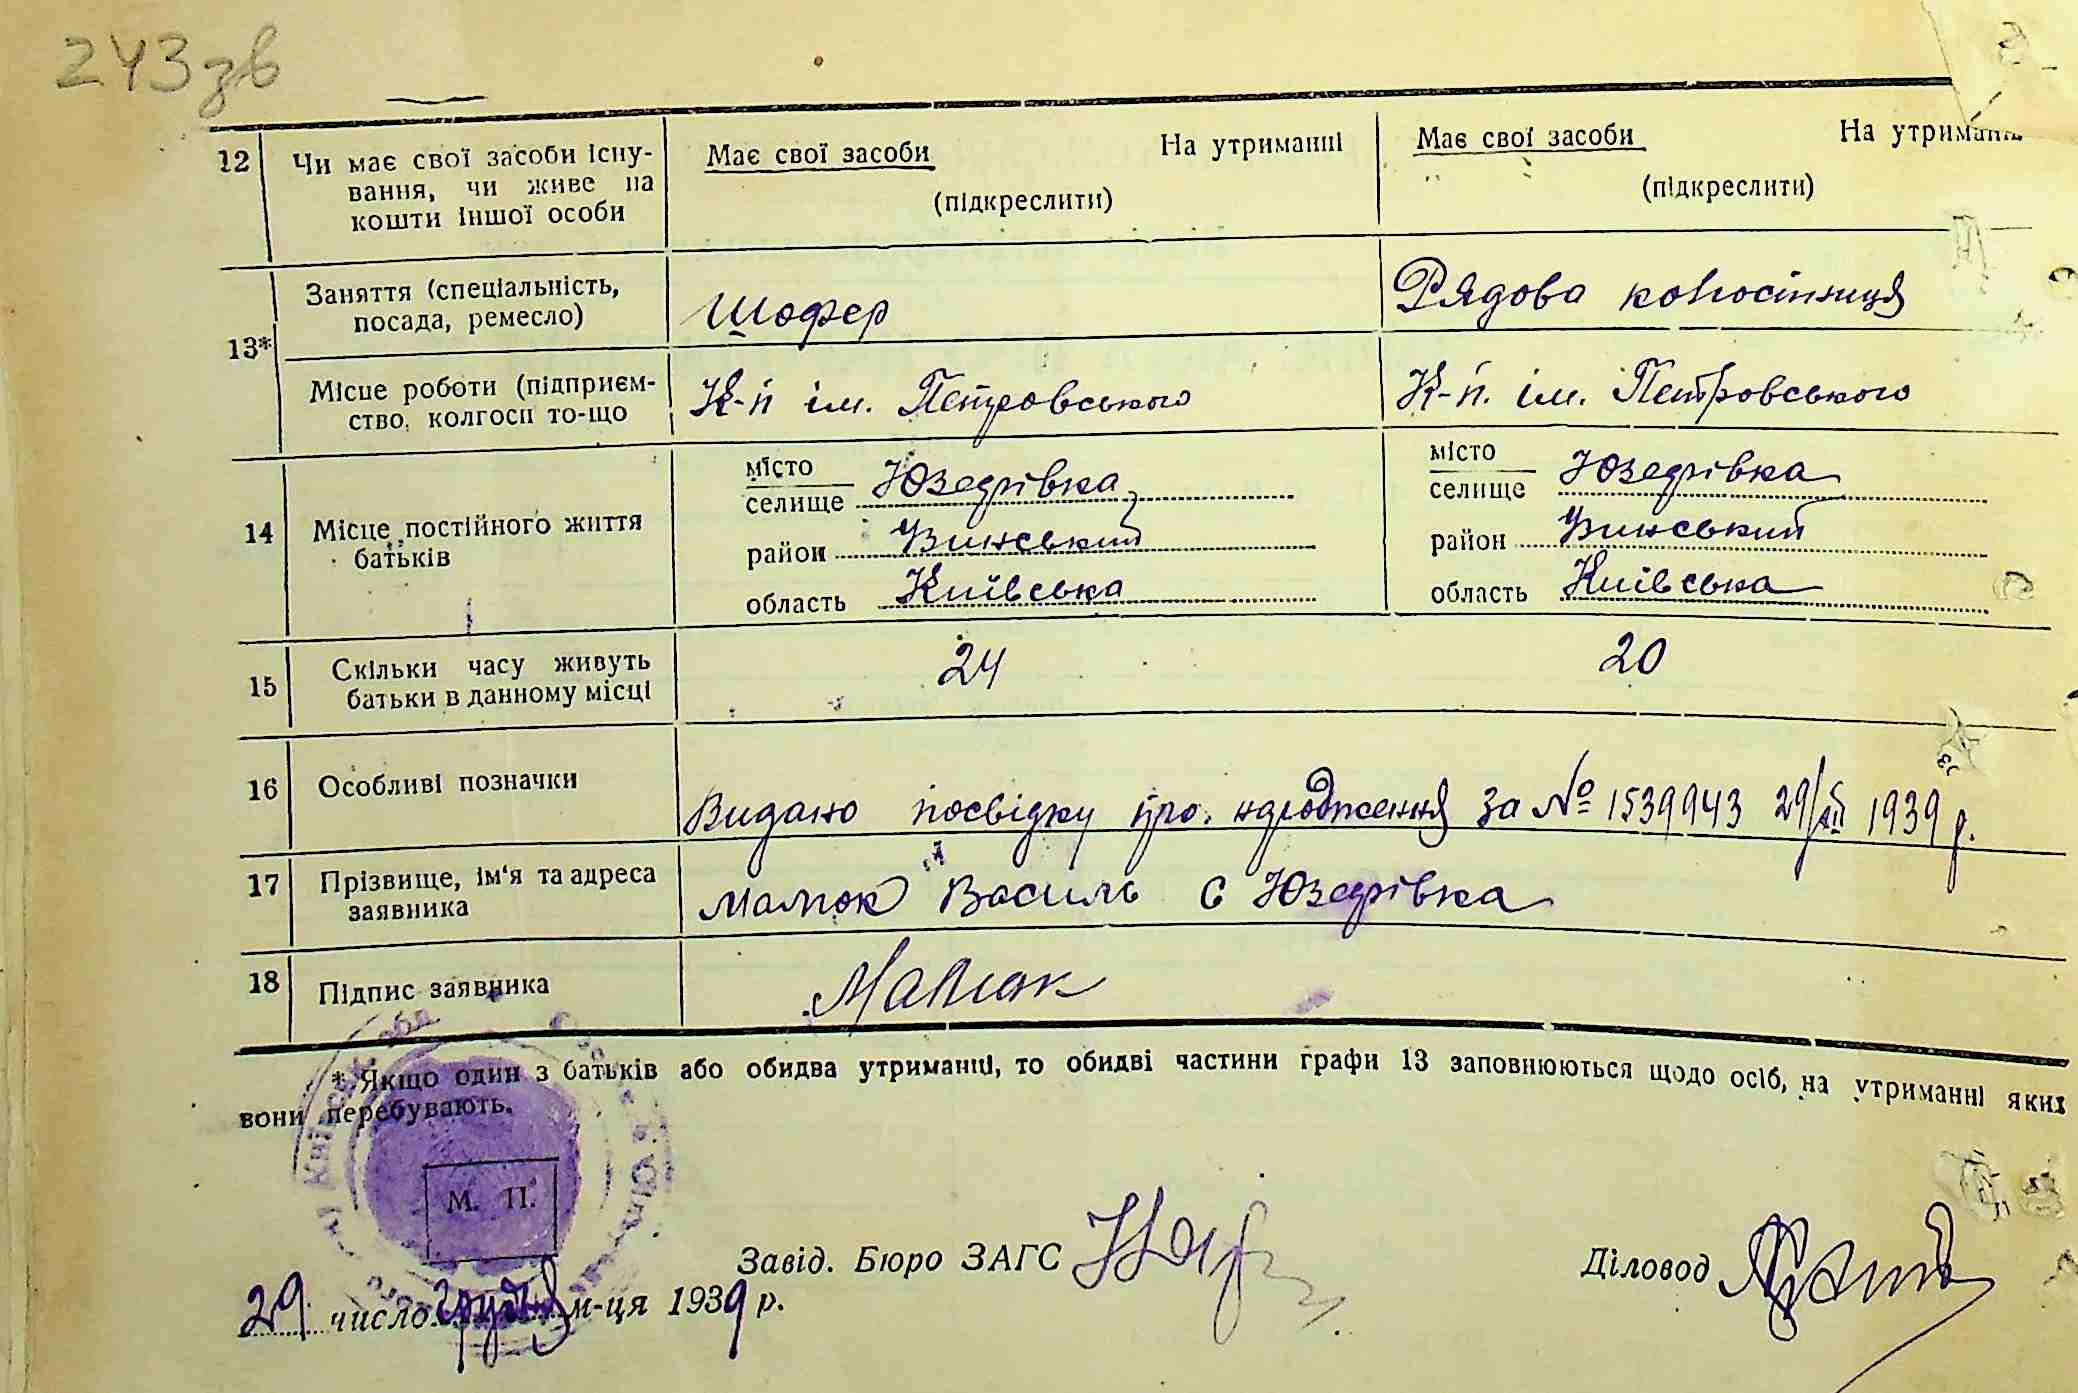 243зв
12 Чи має свої засоби існу-
вання, чи живе на
кошти іншої особи
Має свої засоби На утриманні
(підкреслити)
Має свої засоби На утриманні
(підкреслити)
13*
Заняття (спеціальність,
посада, ремесло)
Шофер
Рядова колгоспниця
Місце роботи (підприєм-
ство, колгосп то-що
К-п ім. Петровського
К-п. ім. Петровського
14 Місце постійного життя
батьків
місто
селище Юзефівка
район
область Київська
місто
селище Юзефівка
район
область Київська
15 Скільки часу живуть
батьки в данному місці
24
20
16 Особливі позначки
Видано посвідку про народження за № 1539943 29/XII 1939 р.
17 Прізвище, ім'я та адреса
заявника
Малюк Василь С Юзефівка
18 Підпис заявника
Малюк
* Якщо один з батьків або обидва утриманці, то обидві частини графи 13 заповнюються щодо осіб, на утриманні яких
вони перебувають.
М. П.
Завід. Бюро ЗАГС
Діловод
29 число грудня м-ця 1939 р.